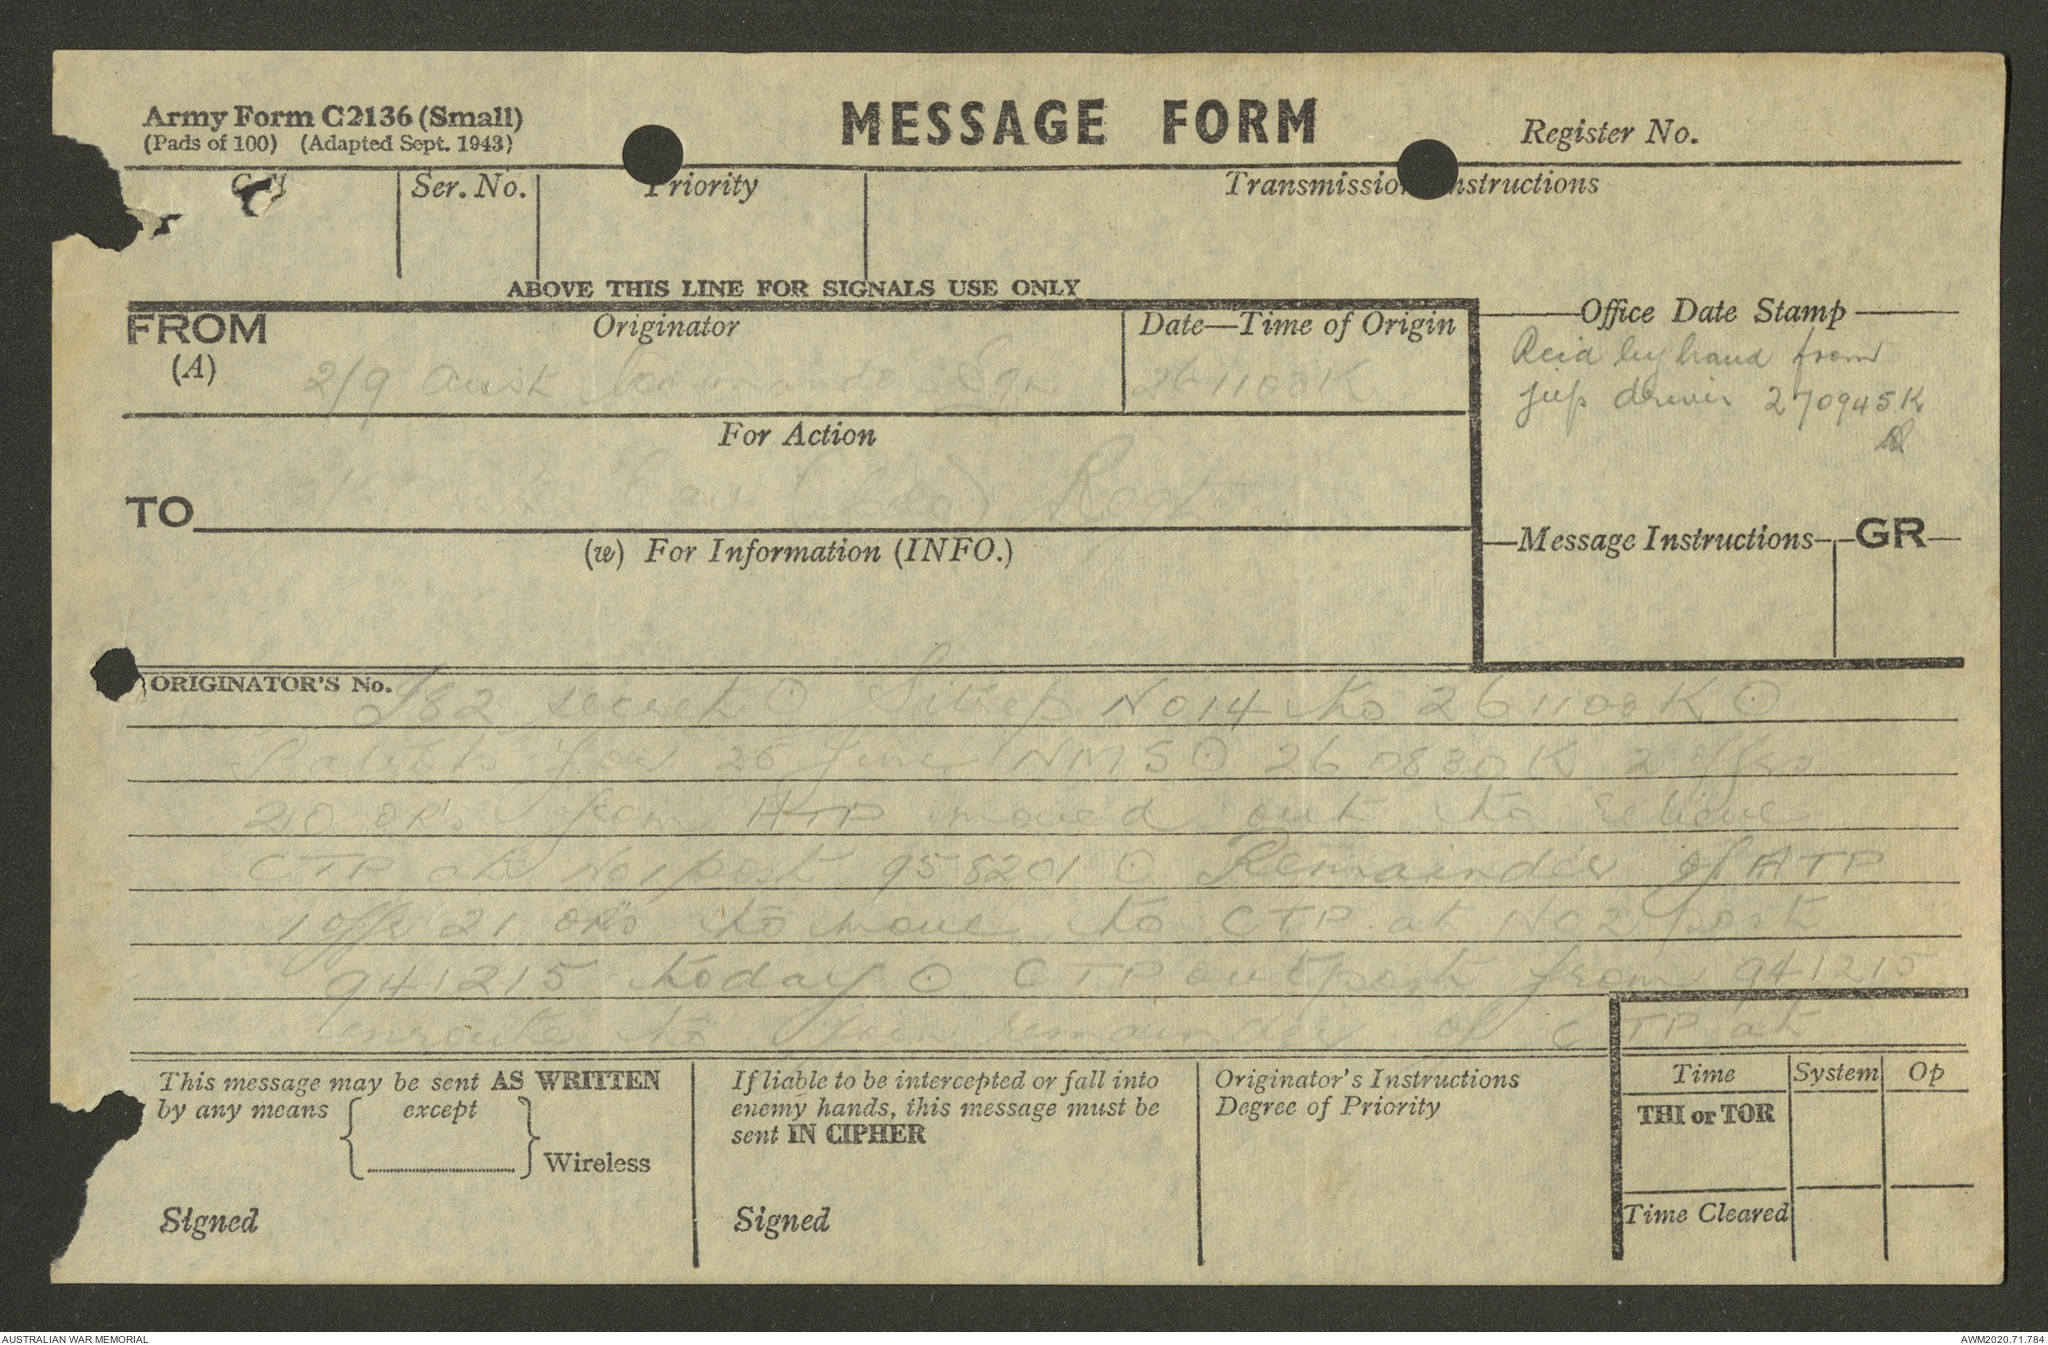 Army Form C2136 (Small)
(Pads of 100) (Adapted Sept. 1943)
MESSAGE FORM
Register No.
Ser. No.
Priority
Transmission Instructions
ABOVE THIS LINE FOR SIGNALS USE ONLY
FROM
(A)
Originator
2/9 Aust Commando Sqn
Date—Time of Origin
261100K
Office Date Stamp
Recd by hand from
jeep driver 270945K
For Action
TO
Cav (Cdo) Regt
(w) For Information (INFO.)
Message Instructions
GR
ORIGINATOR'S No.
J82 secret ⊙ Sitrep No14 to 261100K ⊙
Patrols for 25 June NMS ⊙ 260830K 2 offrs
20 ORs from ATP moved out to relieve
CTP at No1 post 958201 ⊙ Remainder of ATP
1 offr 21 ORs to move to CTP at NO2 post
941215 today ⊙ CTP outpost from 941215
enroute to join remainder of CTP at
This message may be sent AS WRITTEN
by any means { except } Wireless
Signed
If liable to be intercepted or fall into
enemy hands, this message must be
sent IN CIPHER
Signed
Originator's Instructions
Degree of Priority
Time
System
Op
THI or TOR
Time Cleared
AUSTRALIAN WAR MEMORIAL
AWM2020.71.784